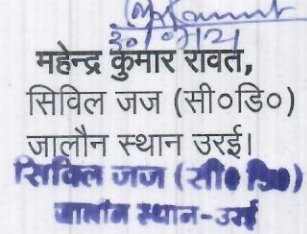 महेन्द्र कुमार रावत,
सिविल जज (सी०डि०)
जालौन स्थान उरई।
सिविल जज (सी० डि०)
जालौन स्थान-उरई